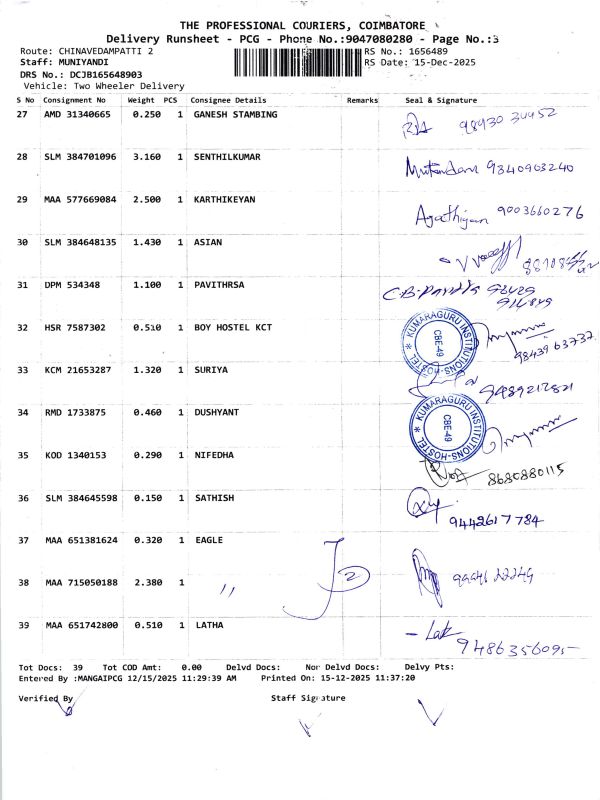 THE PROFESSIONAL COURIERS, COIMBATORE
Delivery Runsheet - PCG - Phone No.:9047080280 - Page No.:3
Route: CHINAVEDAMPATTI 2 RS No.: 1656489
Staff: MUNIYANDI RS Date: 15-Dec-2025
DRS No.: DCJB165648903
Vehicle: Two Wheeler Delivery
S No Consignment No Weight PCS Consignee Details Remarks Seal & Signature
27 AMD 31340665 0.250 1 GANESH STAMBING
28 SLM 384701096 3.160 1 SENTHILKUMAR 9840903240
29 MAA 577669084 2.500 1 KARTHIKEYAN Agathiyan 9003660276
30 SLM 384648135 1.430 1 ASIAN
31 DPM 534348 1.100 1 PAVITHRSA
32 HSR 7587302 0.510 1 BOY HOSTEL KCT
KUMARAGURU INSTITUTIONS-HOSTEL CBE-49
98439 63737
33 KCM 21653287 1.320 1 SURIYA
34 RMD 1733875 0.460 1 DUSHYANT
KUMARAGURU INSTITUTIONS-HOSTEL CBE-49
35 KOD 1340153 0.290 1 NIFEDHA 8680880115
36 SLM 384645598 0.150 1 SATHISH 9442617784
37 MAA 651381624 0.320 1 EAGLE
38 MAA 715050188 2.380 1 "
39 MAA 651742800 0.510 1 LATHA 9486356095
Tot Docs: 39 Tot COD Amt: 0.00 Delvd Docs: Nor Delvd Docs: Delvy Pts:
Entered By :MANGAIPCG 12/15/2025 11:29:39 AM Printed On: 15-12-2025 11:37:20
Verified By Staff Signature